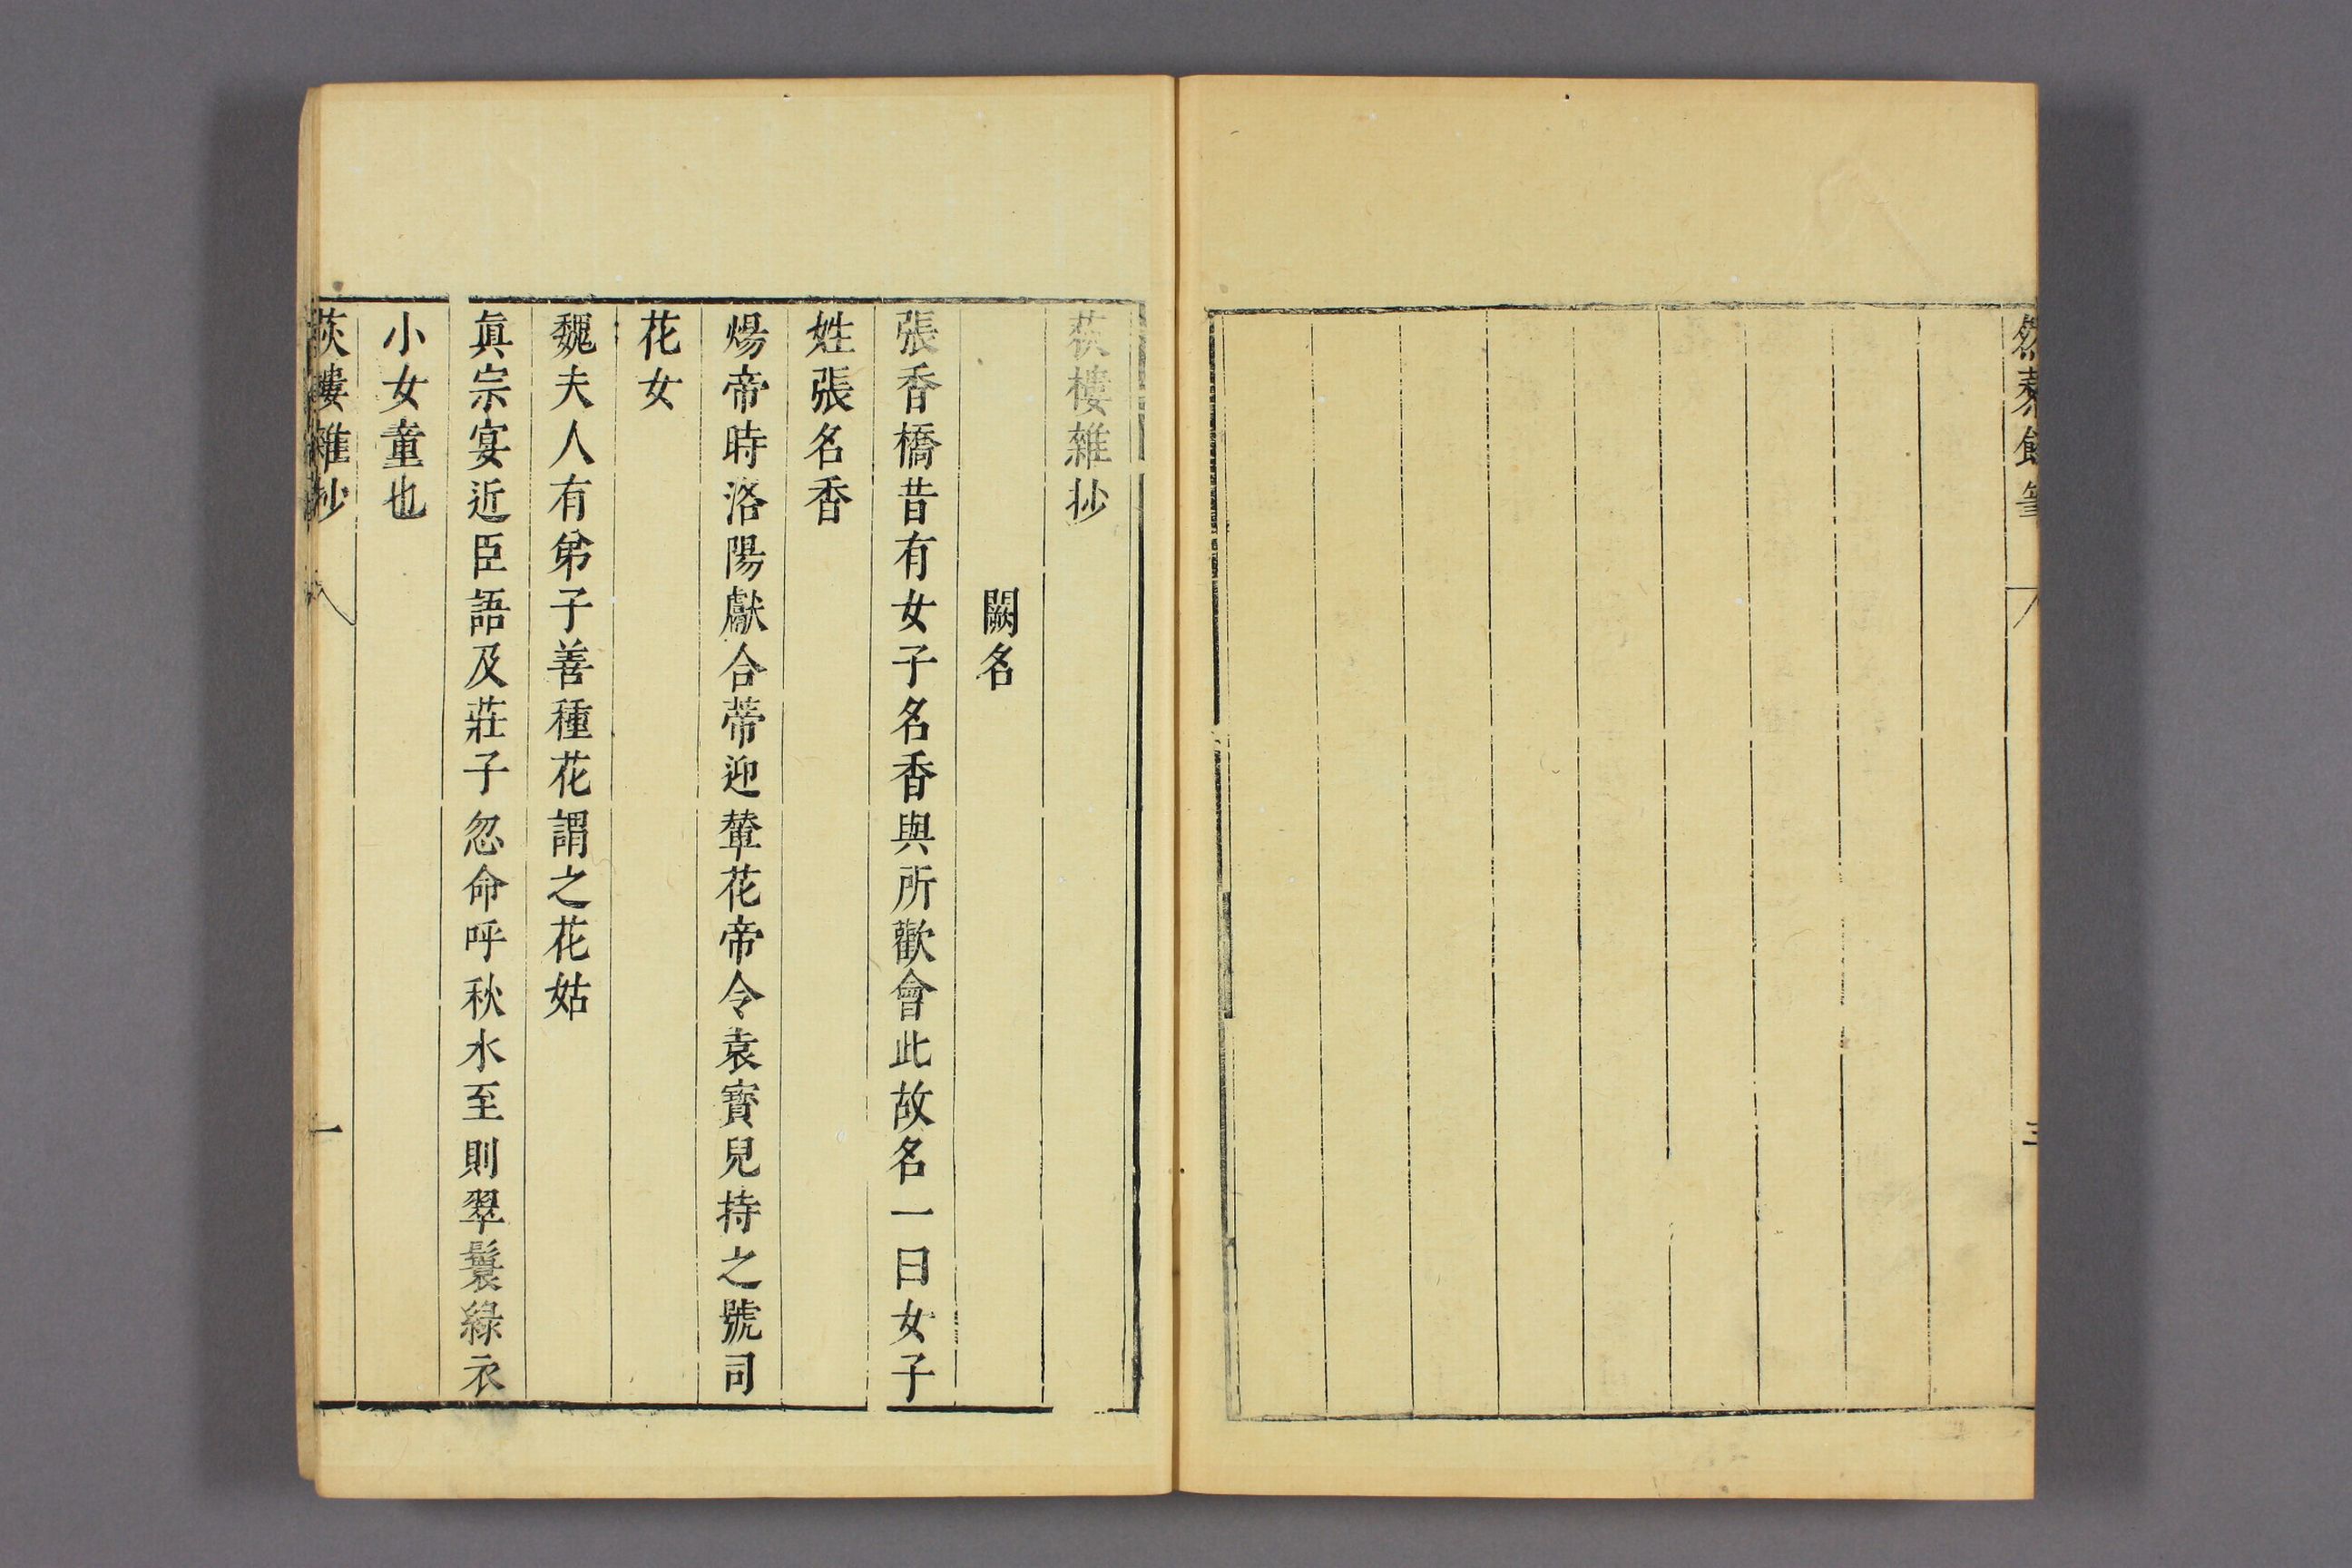 然藜餘筆
三
荻樓雜抄
闕名
張香橋昔有女子名香與所歡會此故名一曰女子
姓張名香
煬帝時洛陽獻合蒂迎輦花帝令袁寶兒持之號司
花女
魏夫人有弟子善種花謂之花姑
眞宗宴近臣語及莊子忽命呼秋水至則翠鬟綠衣
小女童也
荻樓雜抄
一